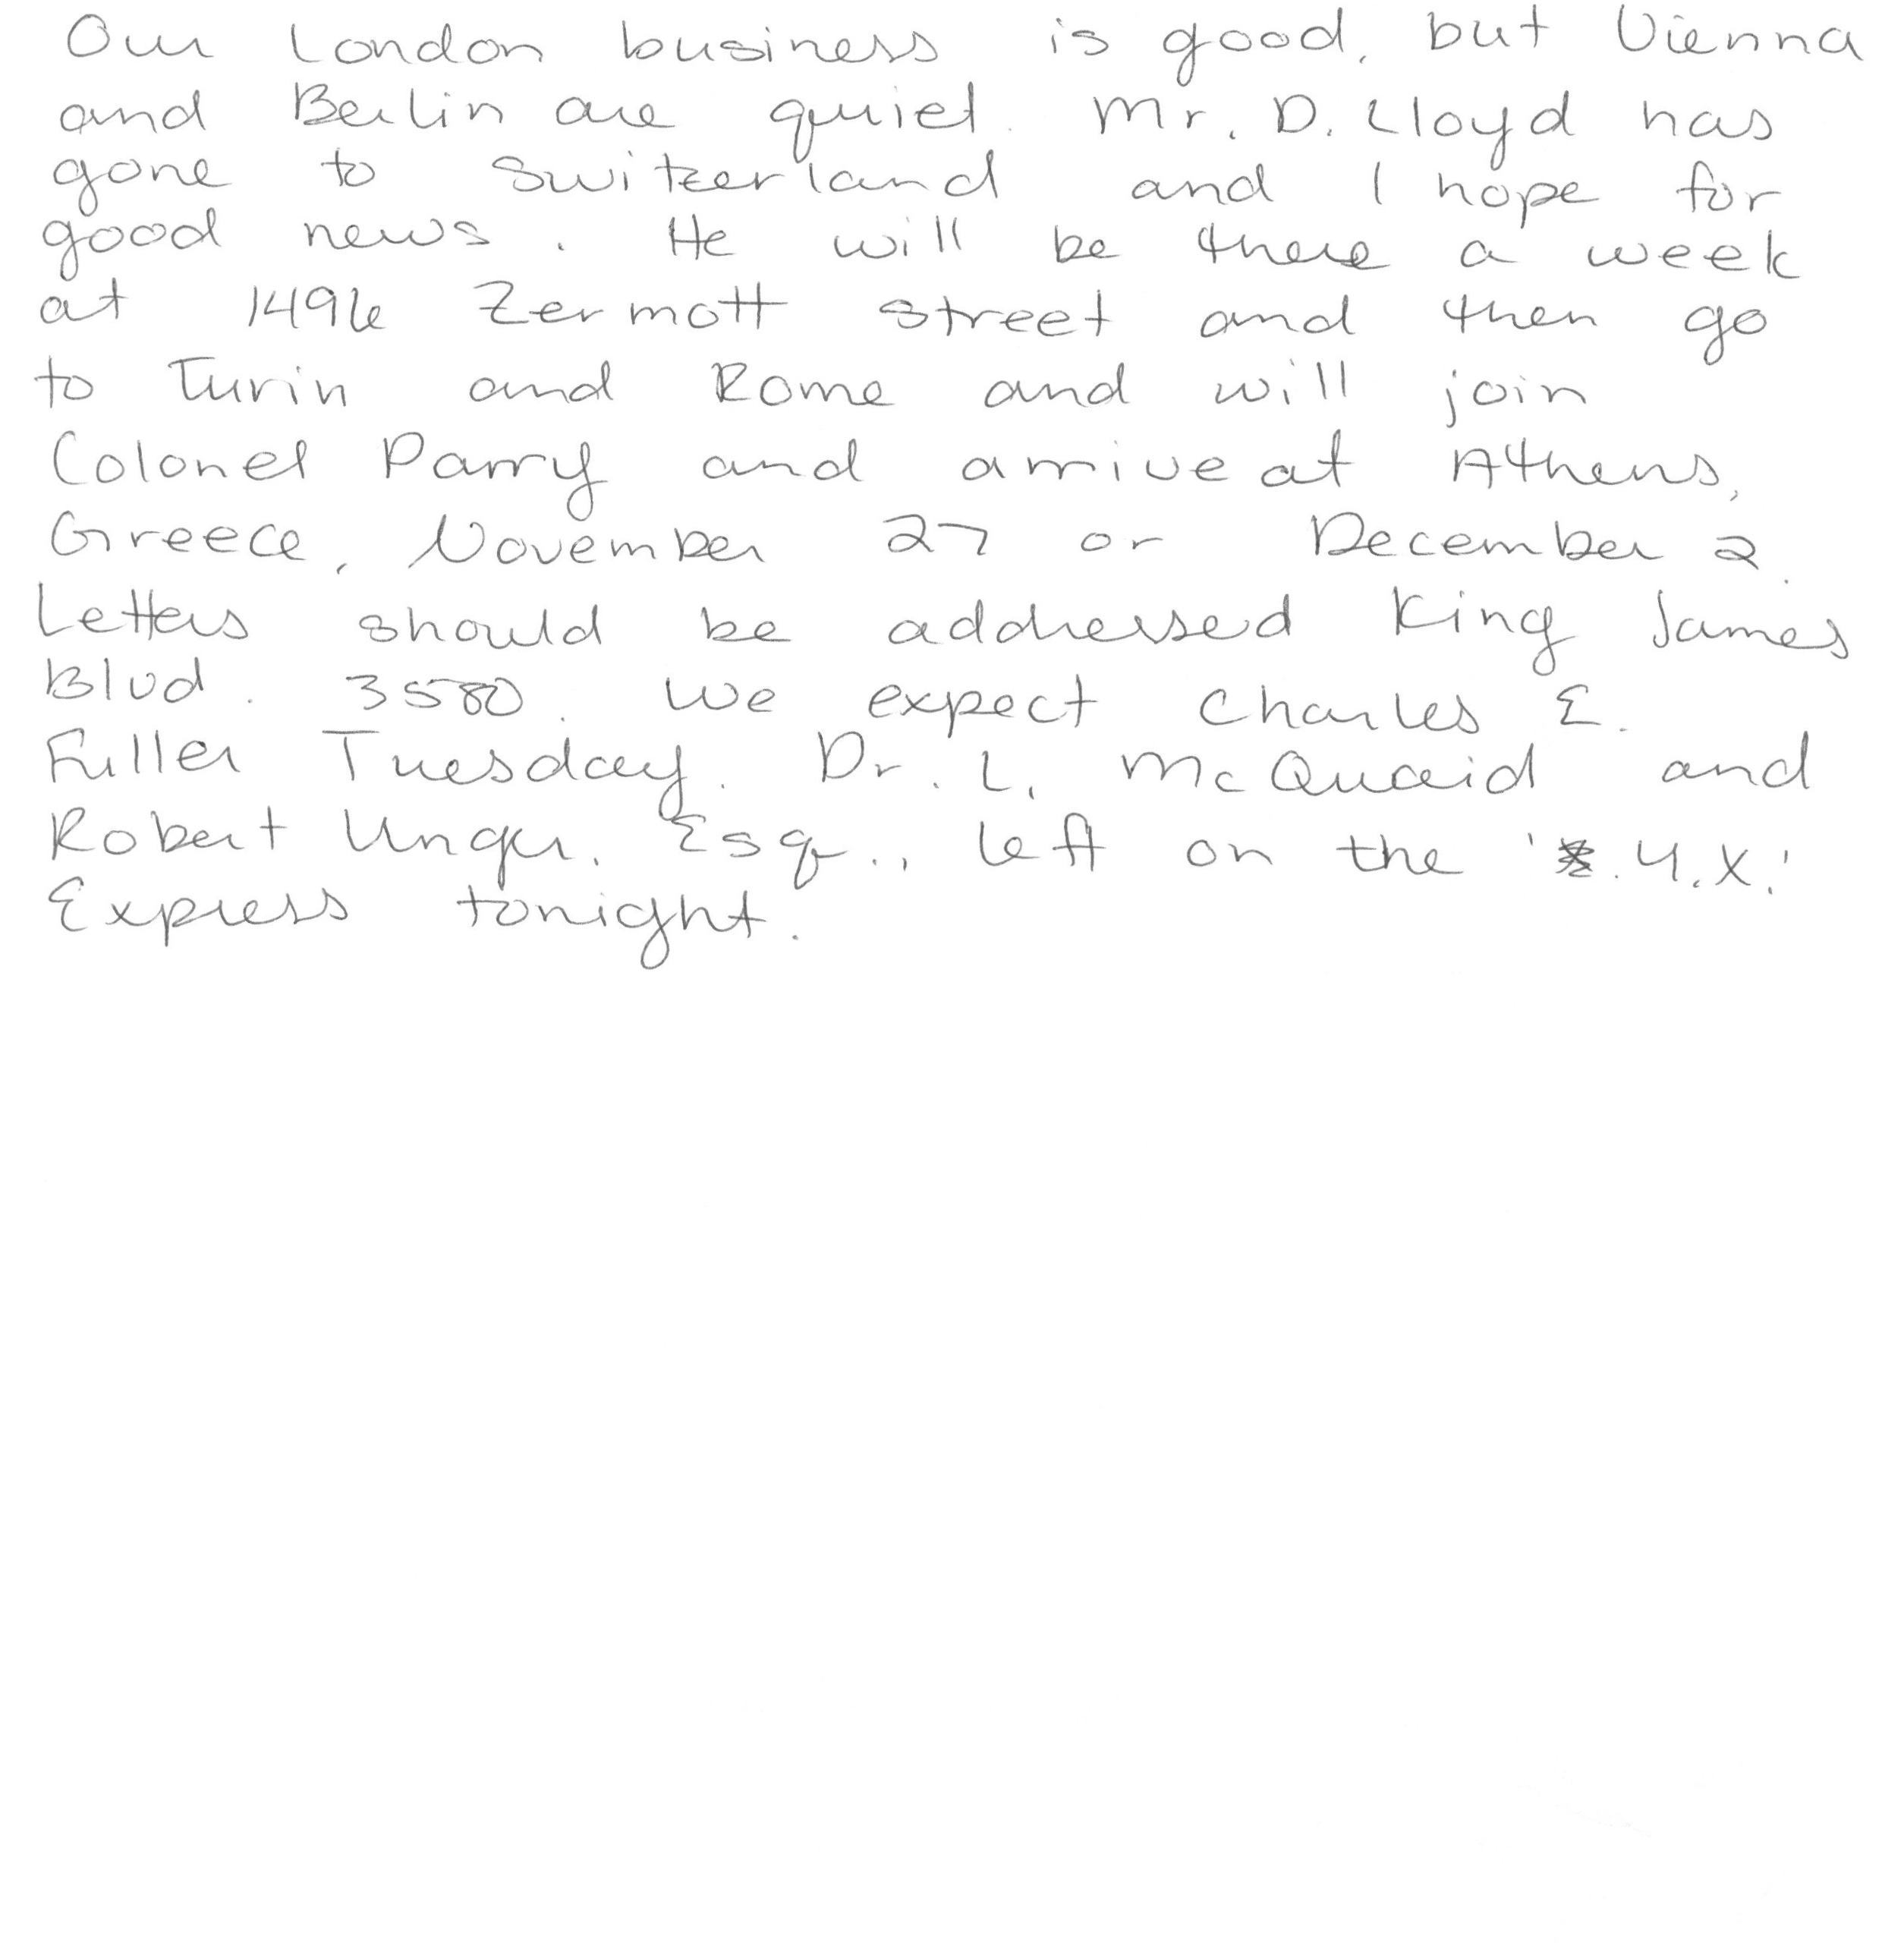 Our London business is good, but Vienna
and Berlin are quiet. Mr. D. Lloyd has
gone to Switzerland and I hope for
good news. He will be there a week
at 1496 Zermott street and then go
to Turin and Rome and will join
Colonel Parry and arrive at Athens,
Greece, November 27 or December 2.
Letters should be addressed King James
Blvd. 3580. We expect Charles E.
Fuller Tuesday. Dr. L. McQuaid and
Robert Unger, Esq., left on the '.Y.X.'
Express tonight.